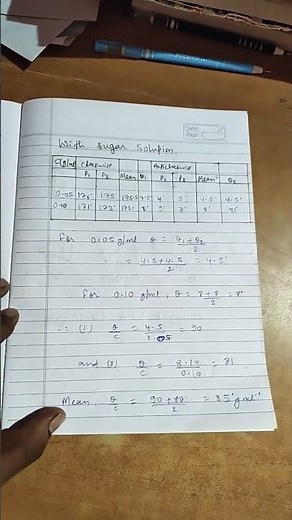 Date:
Page:
With Sugar Solution
C(g/ml) Clockwise Anticlockwise
P1 P2 Mean θ1 P1 P2 Mean θ2
0.05 176° 175° 175.5 4.5° 4° 5° 4.5 4.5°
0.10 171° 172° 172° 8° 7° 8° 8°
For 0.05 g/ml θ = θ1+θ2/2
= 4.5+4.5/2 = 4.5°
For 0.10 g/ml, θ = 8+8/2 = 8°
∴ (1) θ/C = 4.5/0.05 = 90
and (2) θ/C = 8.10/0.10 = 81
Mean θ/C = 90+80/2 = 85° g/ml⁻¹